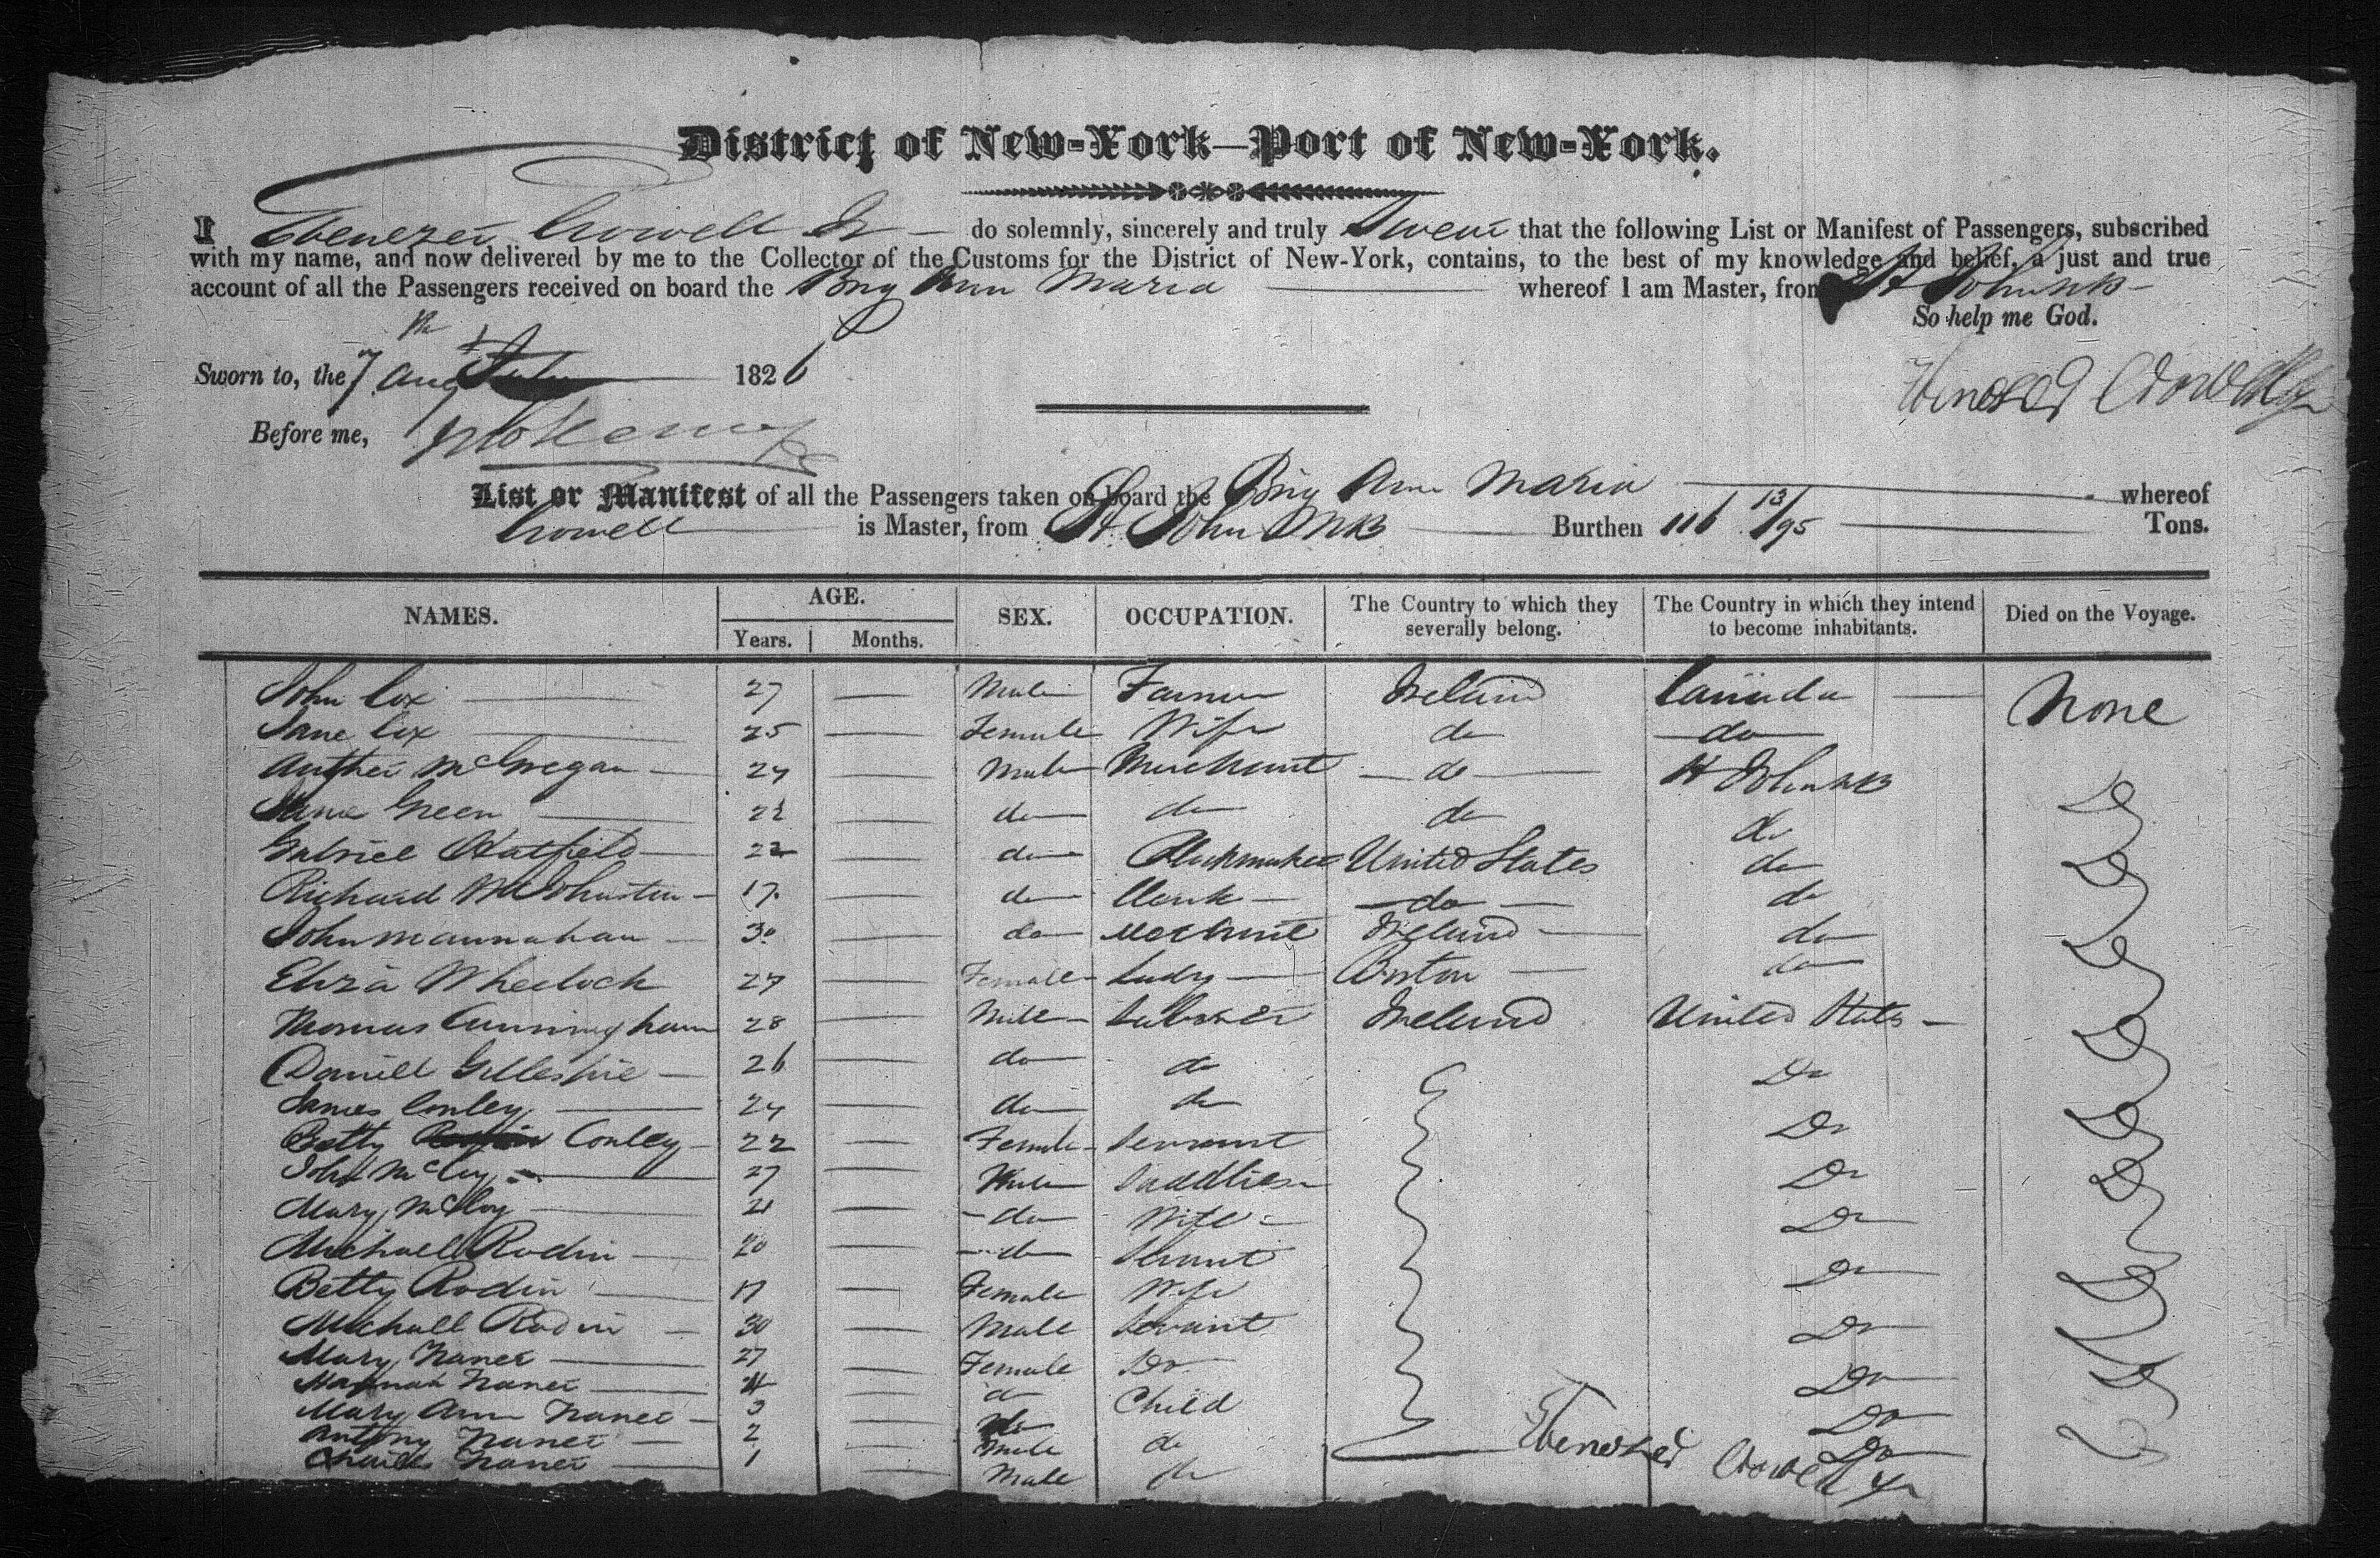 District of New-York—Port of New-York.
I Ebenezer Crowell Jr — do solemnly, sincerely and truly Swear that the following List or Manifest of Passengers, subscribed
with my name, and now delivered by me to the Collector of the Customs for the District of New-York, contains, to the best of my knowledge and belief, a just and true
account of all the Passengers received on board the Brig Ann Maria whereof I am Master, from St Johns NB
So help me God.
Sworn to, the 7 Aug 1826
Ebenezer Crowell Jr
Before me,
List or Manifest of all the Passengers taken on board the Brig Ann Maria whereof
Crowell is Master, from St John NB Burthen 116 13/95 Tons.
NAMES. AGE. Years. Months. SEX. OCCUPATION. The Country to which they severally belong. The Country in which they intend to become inhabitants. Died on the Voyage.
John Cox — 27 — Male Farmer Ireland Canada — None
Jane Cox — 25 — Female Wife do do
Arther McGregan — 24 — Male Merchant do St John NB
Green — 22 — do do do do Do
Gabriel Hatfield — 22 — do United States do Do
Richard — 17 — do Clerk — do — do
John Mannahan — 30 — do Merchant Ireland — do Do
Eliza Wheelock 27 — Female Lady — Boston — do
Thomas Cunningham 28 — Male Labourer Ireland United States — Do
Daniell Gillespie — 26 — do do Do
James Conley — 24 — do do Do Do
Betty Conley — 22 — Female Servant
John McCoy — 27 — Male Saddler Do Do
Mary McCoy — 21 — do Wife Do
Michael Rodin — 20 — do Servant Do
Betty Rodin — 17 — Female Wife Do
Michall Rodin — 30 — Male Servant Do
Mary Naner — 27 — Female Do
Hannah Naner — 4 — do Child Do Do
Mary Ann Naner — 3 — do Do
Antony Naner — 2 — Male do Do
Naner — 1 — Male do
Ebenezer Crowell Jr